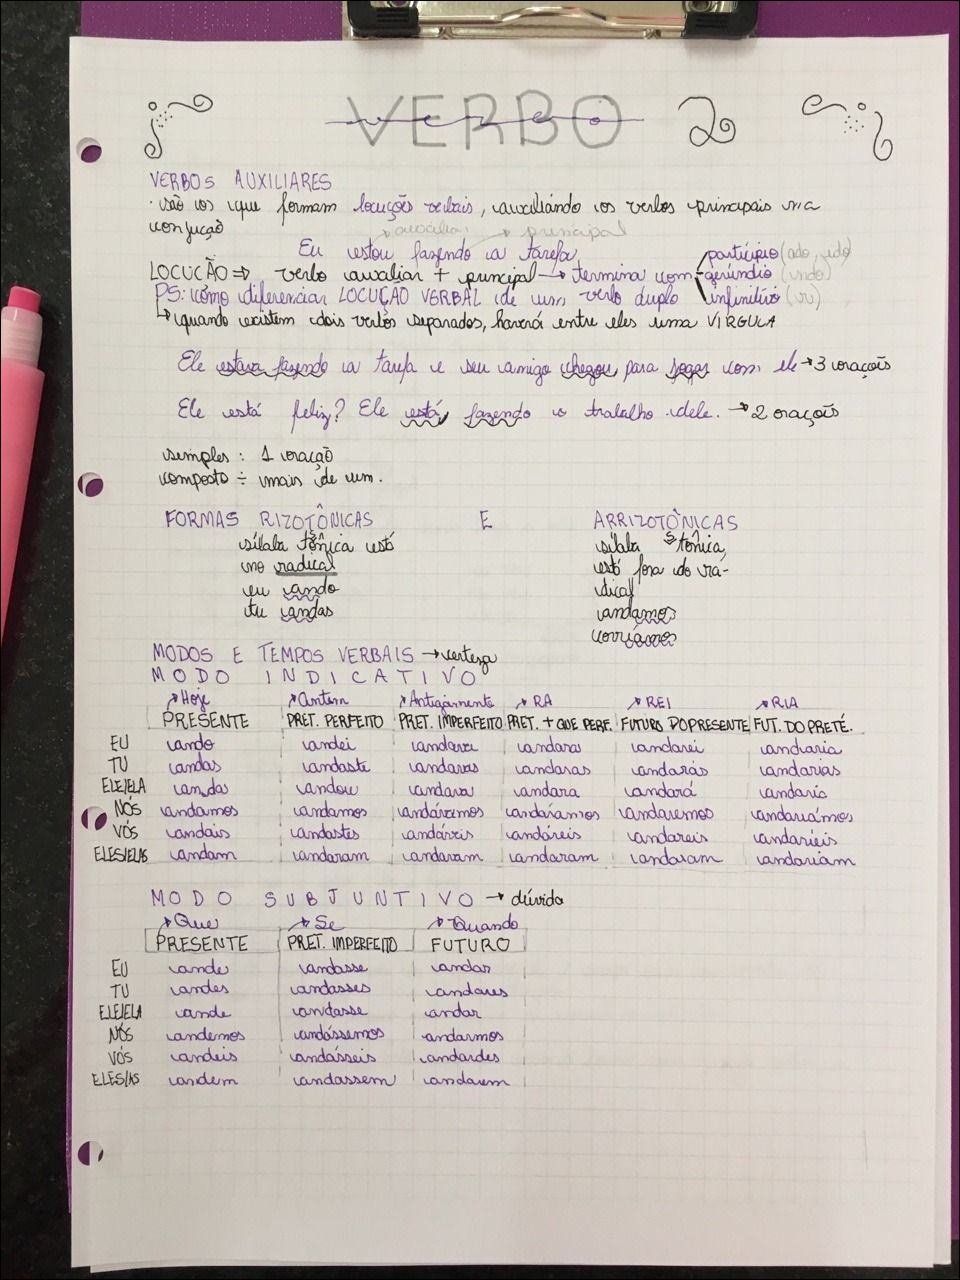 VERBO 2
verbo
VERBOS AUXILIARES
· são os que formam locuções verbais, auxiliando os verbos principais na
conjução
→ auxiliar → principal
Eu estou fazendo a tarefa
LOCUCÃO ⇒ verbo auxiliar + principal → termina com particípio (ado, ido)
gerúndio (ndo)
infinitivo (r)
PS: como diferenciar LOCUÇÃO VERBAL de um verbo duplo
↳ quando existem dois verbos separados, haverá entre eles uma VIRGULA
Ele estava fazendo a tarefa e seu amigo chegou para jogar com ele → 3 orações
Ele está feliz? Ele está fazendo o trabalho dele. → 2 orações
simples: 1 oração
composto ÷ mais de um.
FORMAS RIZOTÔNICAS E ARRIZOTÔNICAS
sílaba tônica está
no radical
eu ando
tu andas
sílaba tônica,
está fora do ra-
dical
andamos
corríamos
MODOS E TEMPOS VERBAIS → certeza
MODO INDICATIVO
↗Hoje ↗Ontem ↗Antigamente ↗RA ↗REI ↗RIA
PRESENTE PRET. PERFEITO PRET. IMPERFEITO PRET. + QUE PERF. FUTURO DO PRESENTE FUT. DO PRETÉ.
EU ando andei andava andara andarei andaria
TU andas andaste andavas andaras andarás andarias
ELE/ELA andas andou andava andara andará andaria
NÓS andamos andamos andávamos andáramos andaremos andaríamos
VÓS andais andastes andáveis andáreis andareis andaríeis
ELES/ELAS andam andaram andavam andaram andaram andariam
MODO SUBJUNTIVO → dúvida
↗Que ↗Se ↗Quando
PRESENTE PRET. IMPERFEITO FUTURO
EU ande andasse andar
TU andes andasses andares
ELE/ELA ande andasse andar
NÓS andemos andássemos andarmos
VÓS andeis andásseis andardes
ELES/AS andem andassem andarem